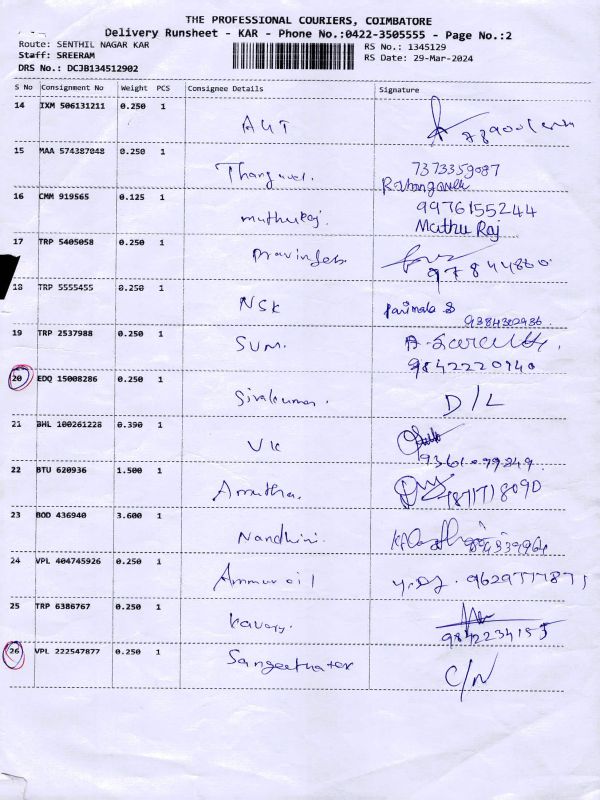 THE PROFESSIONAL COURIERS, COIMBATORE
Delivery Runsheet - KAR - Phone No.:0422-3505555 - Page No.:2
Route: SENTHIL NAGAR KAR
RS No.: 1345129
Staff: SREERAM
RS Date: 29-Mar-2024
DRS No.: DCJB134512902
S No Consignment No Weight PCS Consignee Details Signature
14 IXM 506131211 0.250 1
AUT
15 MAA 574387048 0.250 1
Thangavel. 7373359087
16 CMM 919565 0.125 1
muthuraj. 9976155244
Muthu Raj
17 TRP 5405058 0.250 1
97844860
18 TRP 5555455 0.250 1
NSK Parimala S
9384302936.
19 TRP 2537988 0.250 1
SUM.
9842220940
20 EDQ 15008286 0.250 1
Sivakumar. D/L
21 BHL 100261228 0.390 1
VK
22 BTU 620936 1.500 1
Amutha.
23 BOD 436940 3.600 1
Nandhini.
24 VPL 404745926 0.250 1
Ammur oil
25 TRP 6386767 0.250 1
9842234155
26 VPL 222547877 0.250 1
C/N